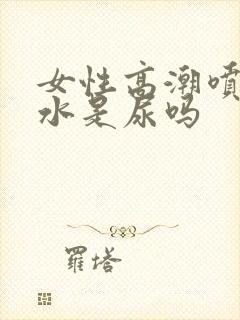 女性高潮噴
水是尿吗
羅塔